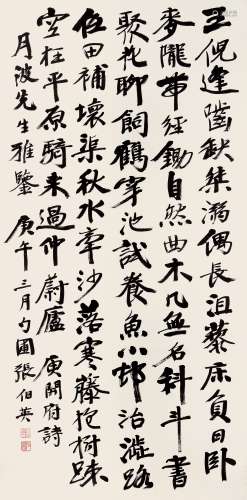 王倪逢齧缺桀溺偶長沮藜床負日臥
麥隴帶經鋤自然曲木几無名科斗書
聚花聊飼鶴穿池試養魚小邨治澀路
低田補壞渠秋水牽沙落寒藤抱樹疎
空枉平原騎來過仲蔚廬 庾開府詩
月波先生雅鑒 庚午三月勺圃張伯英